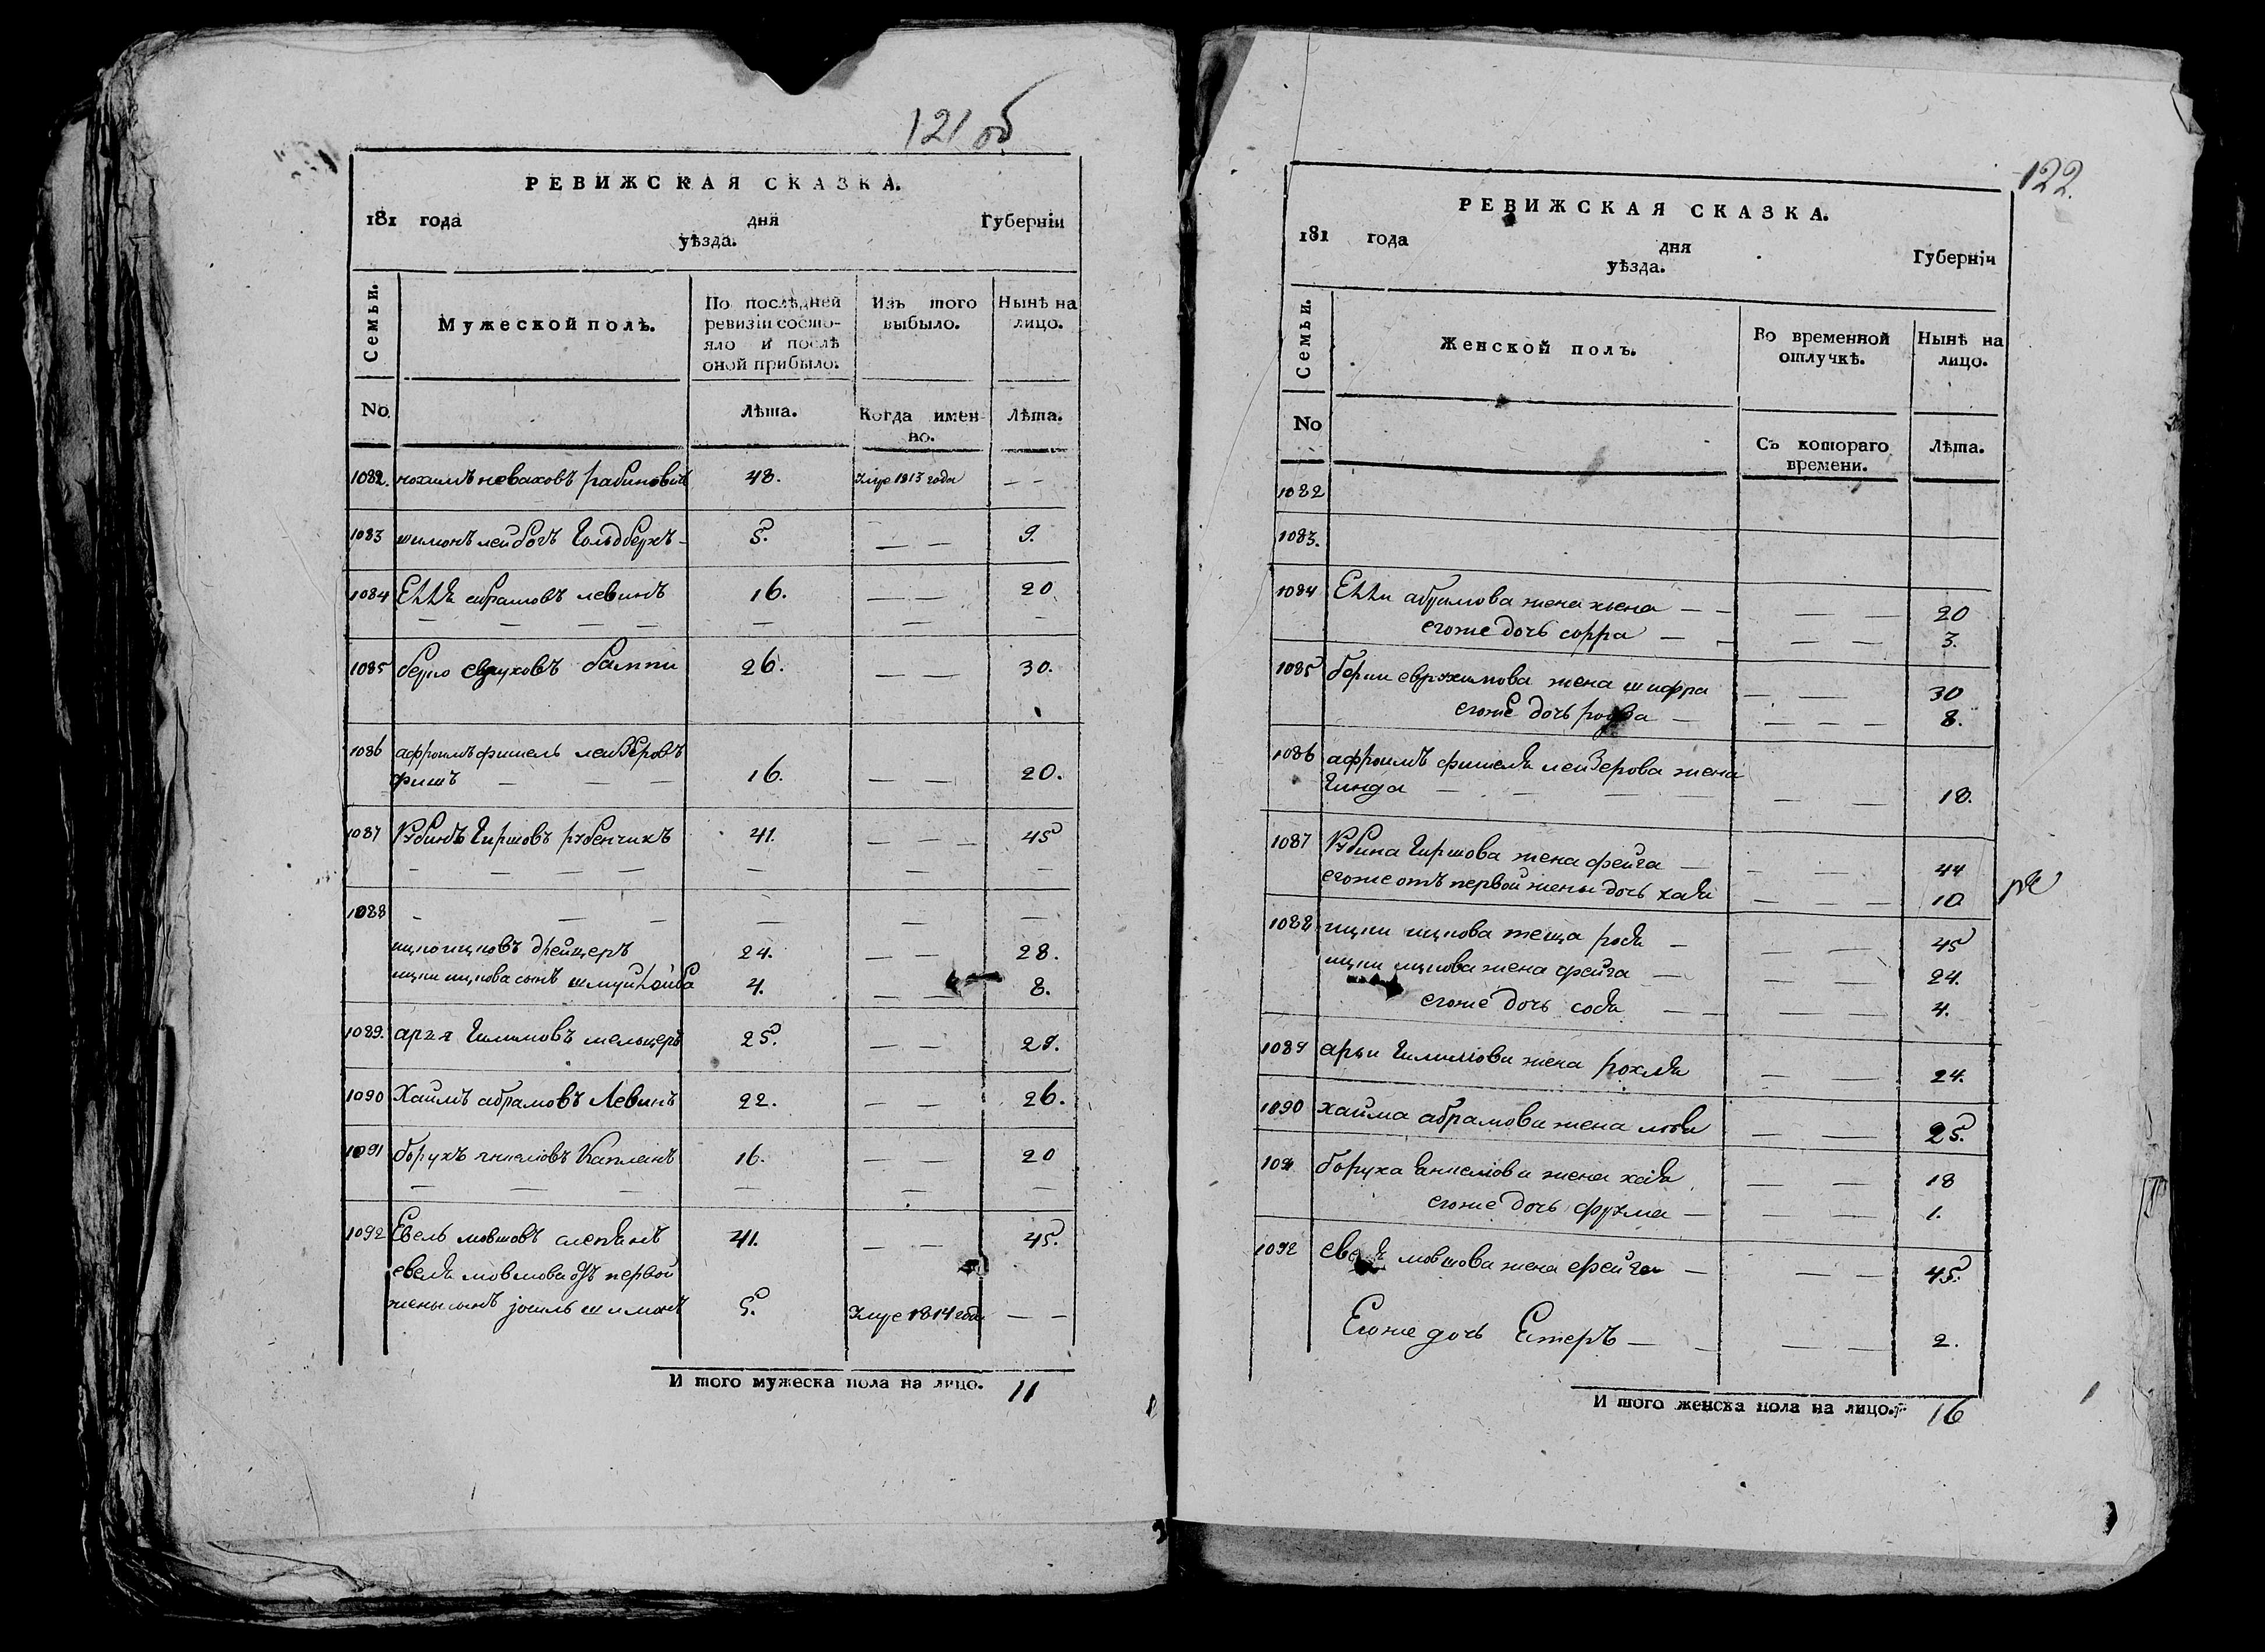 121 об
РЕВИЖСКАЯ СКАЗКА.
181 года дня Губернїи
уѣзда.
Семьи.
Мужеской полъ.
По послѣдней
ревизїи состо-
яло и послѣ
оной прибыло.
Изъ того
выбыло.
Нынѣ на
лицо.
No
Лѣта.
Когда имен-
но.
Лѣта.
1082. нохимъ неваховъ рабиновичъ 48. 1813 года — —
1083 шимонъ лейбовъ Гольдберхъ — 5. — — 9.
1084 абрамовъ левинъ 16. — — 20
1085 берко 26. — — 30.
1086 афроимъ фишель лейзеровъ
фишъ — — — 16. — — 20.
1087 Рубинъ Гиршовъ рубенчикъ 41. — — — 45
1088
ицко ицковъ 24. — — 28.
ицки ицкова сынъ 4. — — 8.
1089. Гилимовъ мельцеръ 25. — — 29.
1090 Хаимъ абрамовъ Левинъ 22. — — 26.
1091 борухъ Капланъ 16. — — 20
1092 Евель мовшовъ 41. — — 45.
евеля мовшова отъ первой
жены сынъ шимонъ 5. 1814 года — —
И того мужеска пола на лицо. 11
122.
РЕВИЖСКАЯ СКАЗКА.
181 года дня Губернїи
уѣзда.
Семьи.
Женской полъ.
Во временной
отлучкѣ.
Нынѣ на
лицо.
No
Съ котораго
времени.
Лѣта.
1082
1083.
1084 абрамова жена — — — — 20
егоже дочь сорра — — — 3.
1085 берки жена шифра — — 30
егоже дочь — — — — 8.
1086 афроимъ фишеля лейзерова жена
Гинда — — — — — — 18.
1087 Рубина Гиршова жена фейга — — — 44
егоже отъ первой жены дочь хая — — — 10
1088 ицки ицкова теща — — — 45
ицки ицкова жена фейга — — — 24.
егоже дочь — — — — 4.
1089 арьи Гилимова жена рохля — — 24.
1090 хаима абрамова жена — — 25.
1091 боруха жена хая — — 18
егоже дочь фрума — — — 1.
1092 мовшова жена фейга — — — 45.
Егоже дочь Естеръ — — — — 2.
И того женска пола на лицо. 16